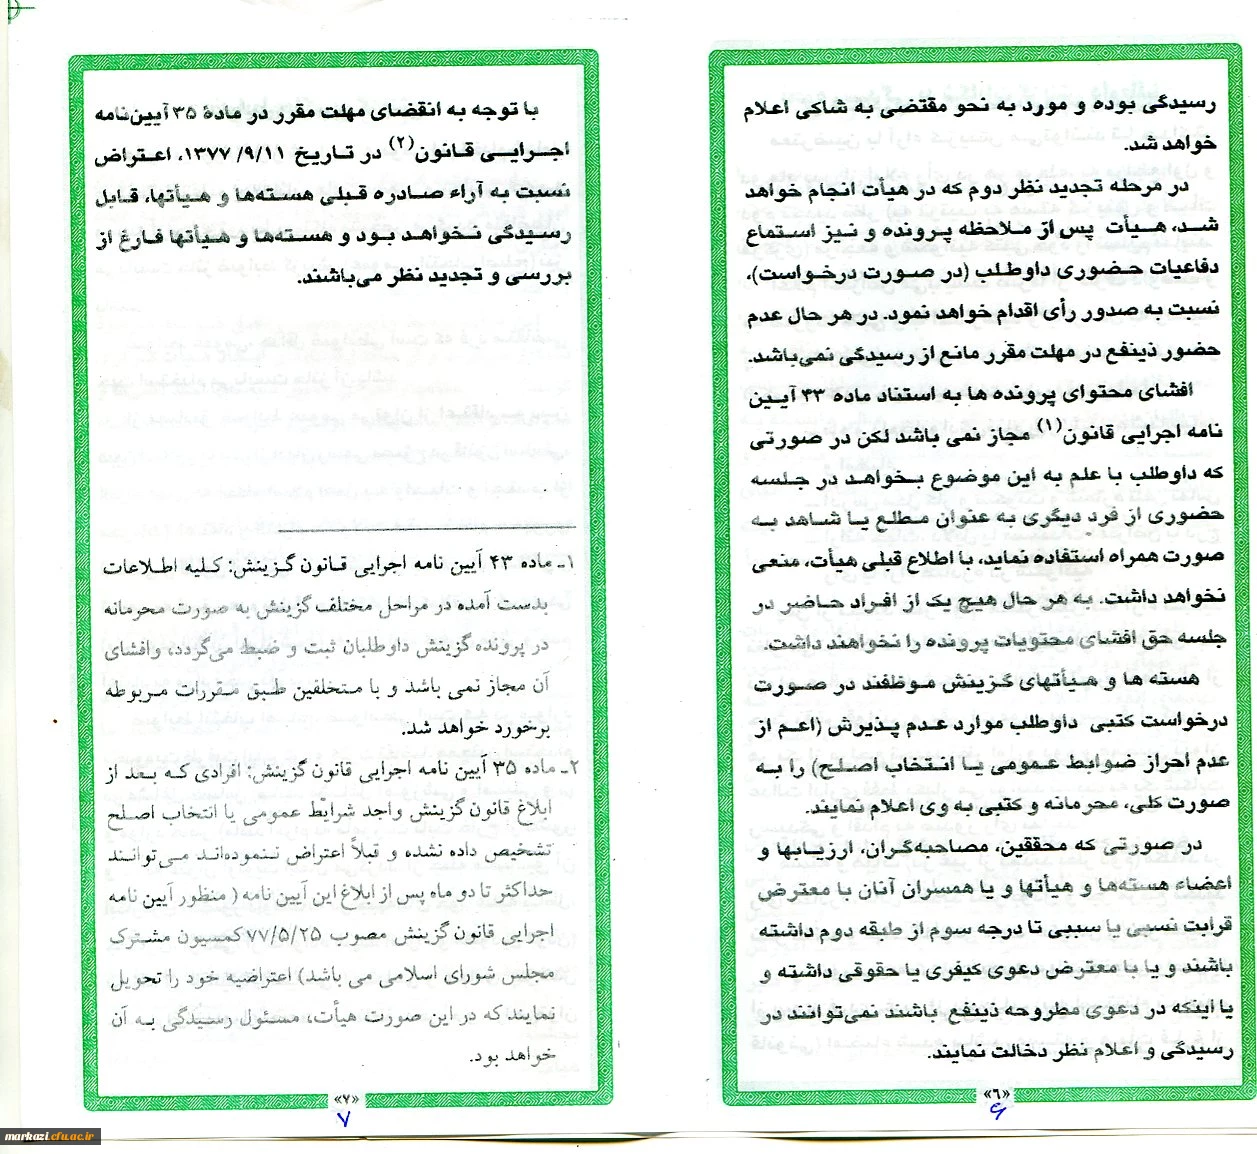 رسیدگی بوده و مورد به نحو مقتضی به شاکی اعلام
خواهد شد.
در مرحله تجدید نظر دوم که در هیأت انجام خواهد
شد، هیأت پس از ملاحظه پرونده و نیز استماع
دفاعیات حضوری داوطلب (در صورت درخواست)،
نسبت به صدور رأی اقدام خواهد نمود. در هر حال عدم
حضور ذینفع در مهلت مقرر مانع از رسیدگی نمی‌باشد.
افشای محتوای پرونده ها به استناد ماده ۴۳ آیین
نامه اجرایی قانون(۱) مجاز نمی باشد لکن در صورتی
که داوطلب با علم به این موضوع بخواهد در جلسه
حضوری از فرد دیگری به عنوان مطلع یا شاهد به
صورت همراه استفاده نماید، با اطلاع قبلی هیأت، منعی
نخواهد داشت. به هر حال هیچ یک از افراد حاضر در
جلسه حق افشای محتویات پرونده را نخواهند داشت.
هسته ها و هیأتهای گزینش موظفند در صورت
درخواست کتبی داوطلب موارد عدم پذیرش (اعم از
عدم احراز ضوابط عمومی یا انتخاب اصلح) را به
صورت کلی، محرمانه و کتبی به وی اعلام نمایند.
در صورتی که محققین، مصاحبه‌گران، ارزیابها و
اعضاء هسته‌ها و هیأتها و یا همسران آنان با معترض
قرابت نسبی یا سببی تا درجه سوم از طبقه دوم داشته
باشند و یا با معترض دعوی کیفری یا حقوقی داشته و
یا اینکه در دعوی مطروحه ذینفع باشند نمی‌توانند در
رسیدگی و اعلام نظر دخالت نمایند.
«۶»
۶
با توجه به انقضای مهلت مقرر در مادهٔ ۳۵ آیین‌نامه
اجرایی قانون(۲) در تاریخ ۱۳۷۷/۹/۱۱، اعتراض
نسبت به آراء صادره قبلی هسته‌ها و هیأتها، قابل
رسیدگی نخواهد بود و هسته‌ها و هیأتها فارغ از
بررسی و تجدید نظر می‌باشند.
۱ـ ماده ۴۳ آیین نامه اجرایی قانون گزینش: کلیه اطلاعات
بدست آمده در مراحل مختلف گزینش به صورت محرمانه
در پرونده گزینش داوطلبان ثبت و ضبط می‌گردد، وافشای
آن مجاز نمی باشد و با متخلفین طبق مقررات مربوطه
برخورد خواهد شد.
۲ـ ماده ۳۵ آیین نامه اجرایی قانون گزینش: افرادی که بعد از
ابلاغ قانون گزینش واجد شرایط عمومی یا انتخاب اصلح
تشخیص داده نشده و قبلاً اعتراض ننموده‌اند می‌توانند
حداکثر تا دو ماه پس از ابلاغ این آیین نامه ( منظور آیین نامه
اجرایی قانون گزینش مصوب ۷۷/۵/۲۵ کمسیون مشترک
مجلس شورای اسلامی می باشد) اعتراضیه خود را تحویل
نمایند که در این صورت هیأت، مسئول رسیدگی به آن
خواهد بود.
«۷»
۷
markazi.cfu.ac.ir